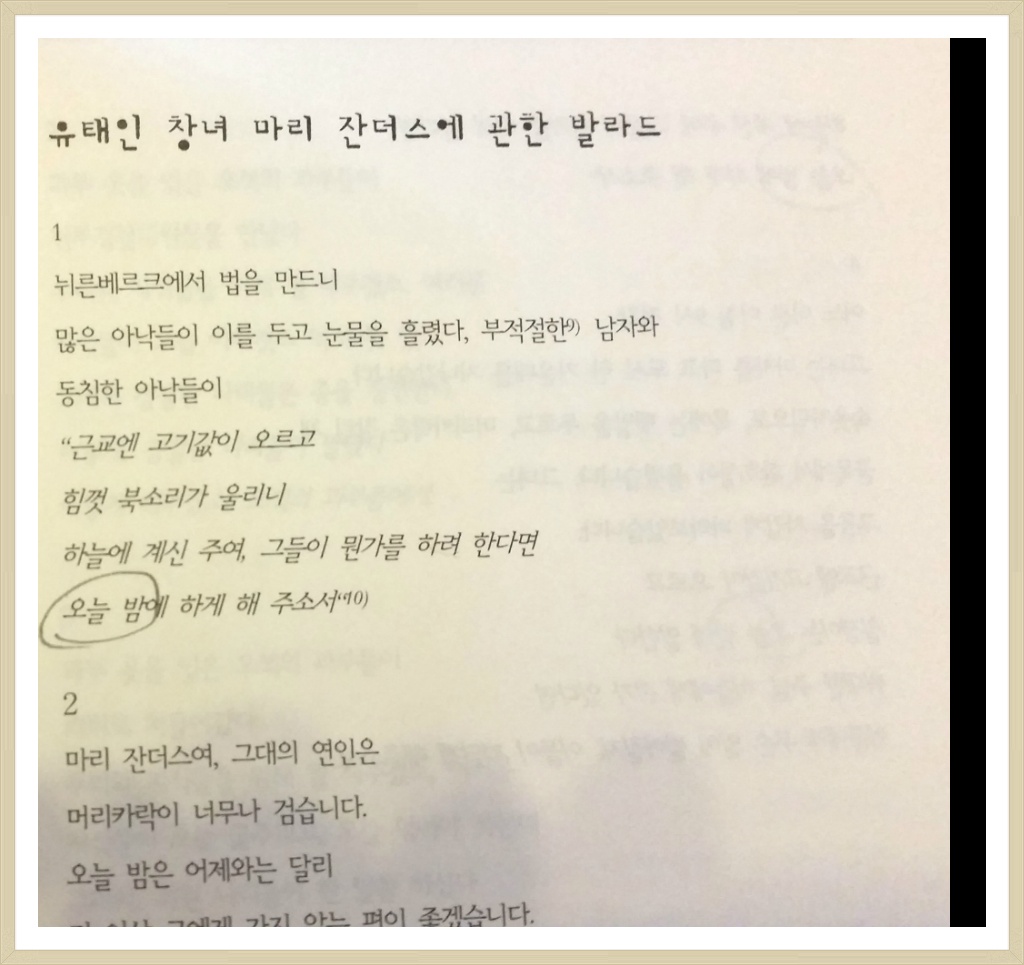 유태인 창녀 마리 잔더스에 관한 발라드
1
뉘른베르크에서 법을 만드니
많은 아낙들이 이를 두고 눈물을 흘렸다, 부적절한9) 남자와
동침한 아낙들이
“근교엔 고기값이 오르고
힘껏 북소리가 울리니
하늘에 계신 주여, 그들이 뭔가를 하려 한다면
오늘 밤에 하게 해 주소서“10)
2
마리 잔더스여, 그대의 연인은
머리카락이 너무나 검습니다.
오늘 밤은 어제와는 달리
더 이상 그에게 가지 않는 편이 좋겠습니다.